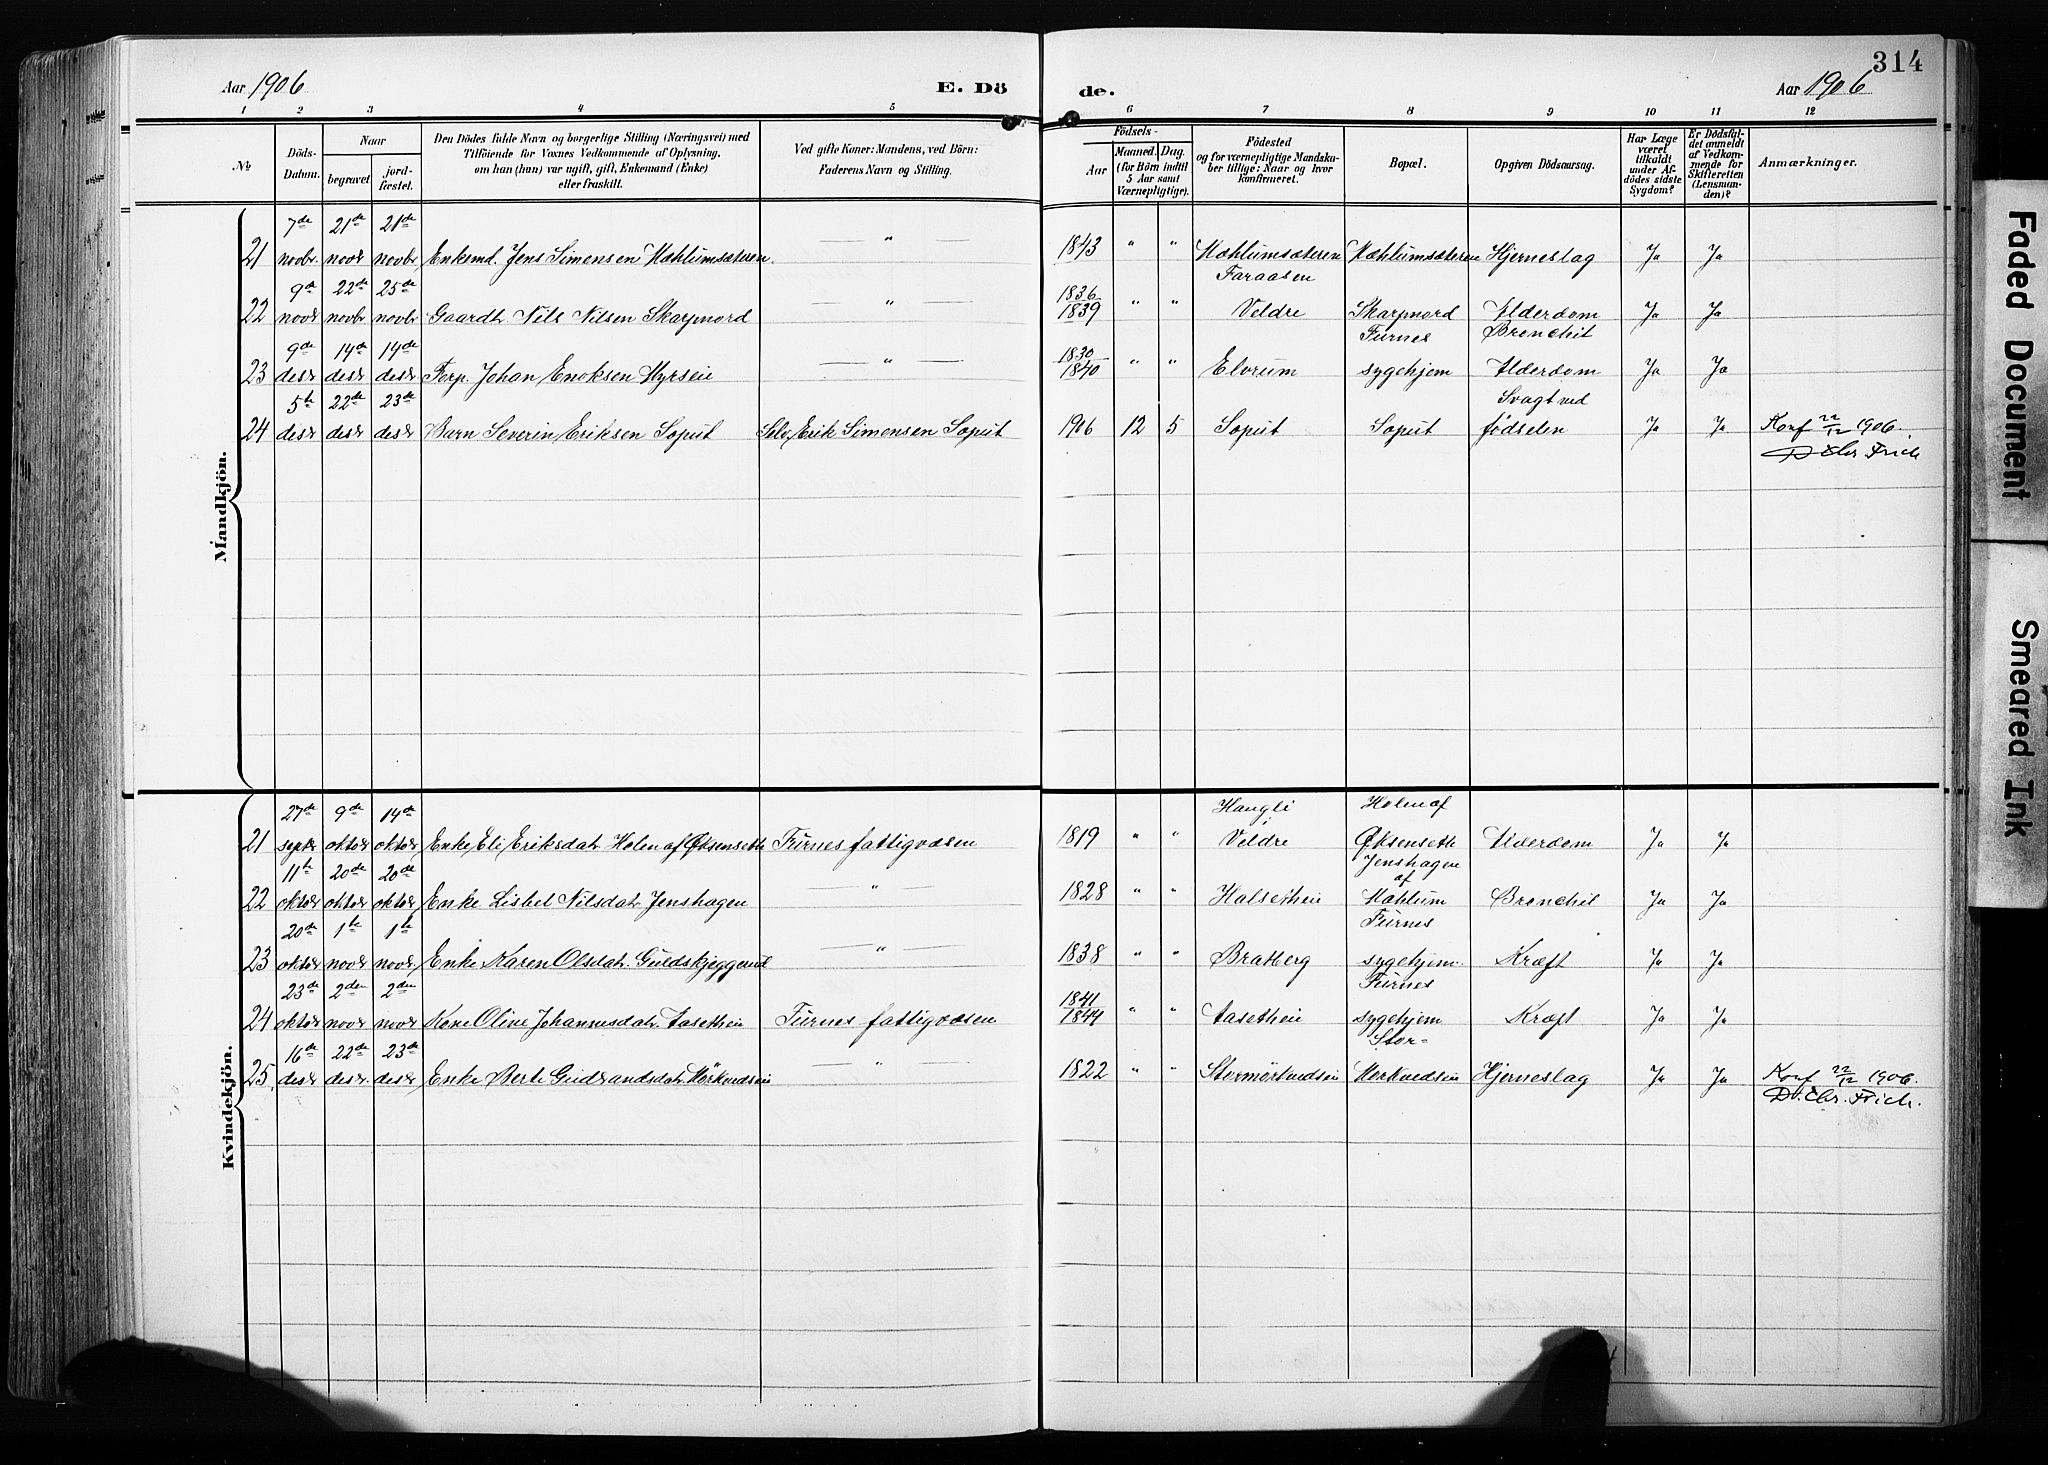 314
Aar 1906 E. Dö de. Aar 1906
1 2 3 4 5 6 7 8 9 10 11 12
No
Döds-Datum.
Naar
begravet
jord-fæstet.
Den Dödes fulde Navn og borgerlige Stilling (Næringsvei) med
Tilföiende for Voxnes Vedkommende af Oplysning,
om han (hun) var ugift, gift, Enkemand (Enke)
eller fraskilt.
Ved gifte Koner: Mandens, ved Börn:
Faderens Navn og Stilling.
Födsels-
Aar
Maaned. Dag.
(for Börn indtil
5 Aar samt
Værnepligtige).
Födested
og for værnepligtige Mandska-
ber tillige: Naar og hvor
konfirmeret.
Bopæl.
Opgiven Dödsaarsag.
Har Læge
været
tilkaldt
under Af-
dödes sidste
Sygdom?
Er Dödsfal-
det anmeldt
af Vedkom-
mende for
Skifteretten
(Lensman-
den)?
Anmærkninger.
Mandkjön.
7de 21de 21de
21 novbr. novbr novbr Enkemd. Jens Simensen Mæhlumsæteren — " — 1843 " " Mæhlumsæteren Mæhlumsæteren Hjerneslag Ja Ja
9de 22de 25de 1836 Faraasen
22 novbr novbr novbr Gaardbr. Nils Nilsen Skarpnord — " — 1839 " " Veldre Skarpnord Alderdom Ja Ja
9de 14de 14de 1830 Furnes Bronchit
23 desbr desbr desbr Torp. Johan Enoksen Myrseie — " — 1840 " " Elvrum sygehjem Alderdom Ja Ja
5te 22de 23de Svagt ved
24 desbr desbr desbr Barn Severin Eriksen Soput Selv. Erik Simensen Soput 1906 12 5 Soput Soput fødselen Ja Ja Konf 22/12 1906.
D Chr Frich
Kvindekjön.
27de 9de 14de Haugli Holen af
21 septbr oktbr oktbr Enke Eli Eriksdatr Holen af Øksenseth Furnes fattigvæsen 1819 " " Veldre Øksenseth Alderdom Ja Ja
11te 20de 20de Jenshagen af
22 oktbr oktbr oktbr Enke Lisbet Nilsdatr Jenshagen — " — 1828 " " Halsetheie Mæhlum Bronchit Ja Ja
20de 1te 1te Furnes
23 oktbr novbr novbr Enke Karen Olsdatr. Guldskjeggerud — " — 1838 " " Bratberg sygehjem. Kræft Ja Ja
23de 2den 2den 1841 Furnes
24 oktbr novbr novbr Kone Oline Johannesdatr. Aasetheie Furnes fattigvæsen 1844 " " Aasetheie sygehjem Kræft Ja Ja
16de 22de 23de Stor-
25. desbr desbr. desbr Enke Berte Gudbrandsdatr. Mørkvedseie — " — 1822 " " Stormørkvedseie Mørkvedseie Hjerneslag Ja Ja Konf 22/12 1906.
D. Chr. Frich.
Faded Document
Smeared Ink